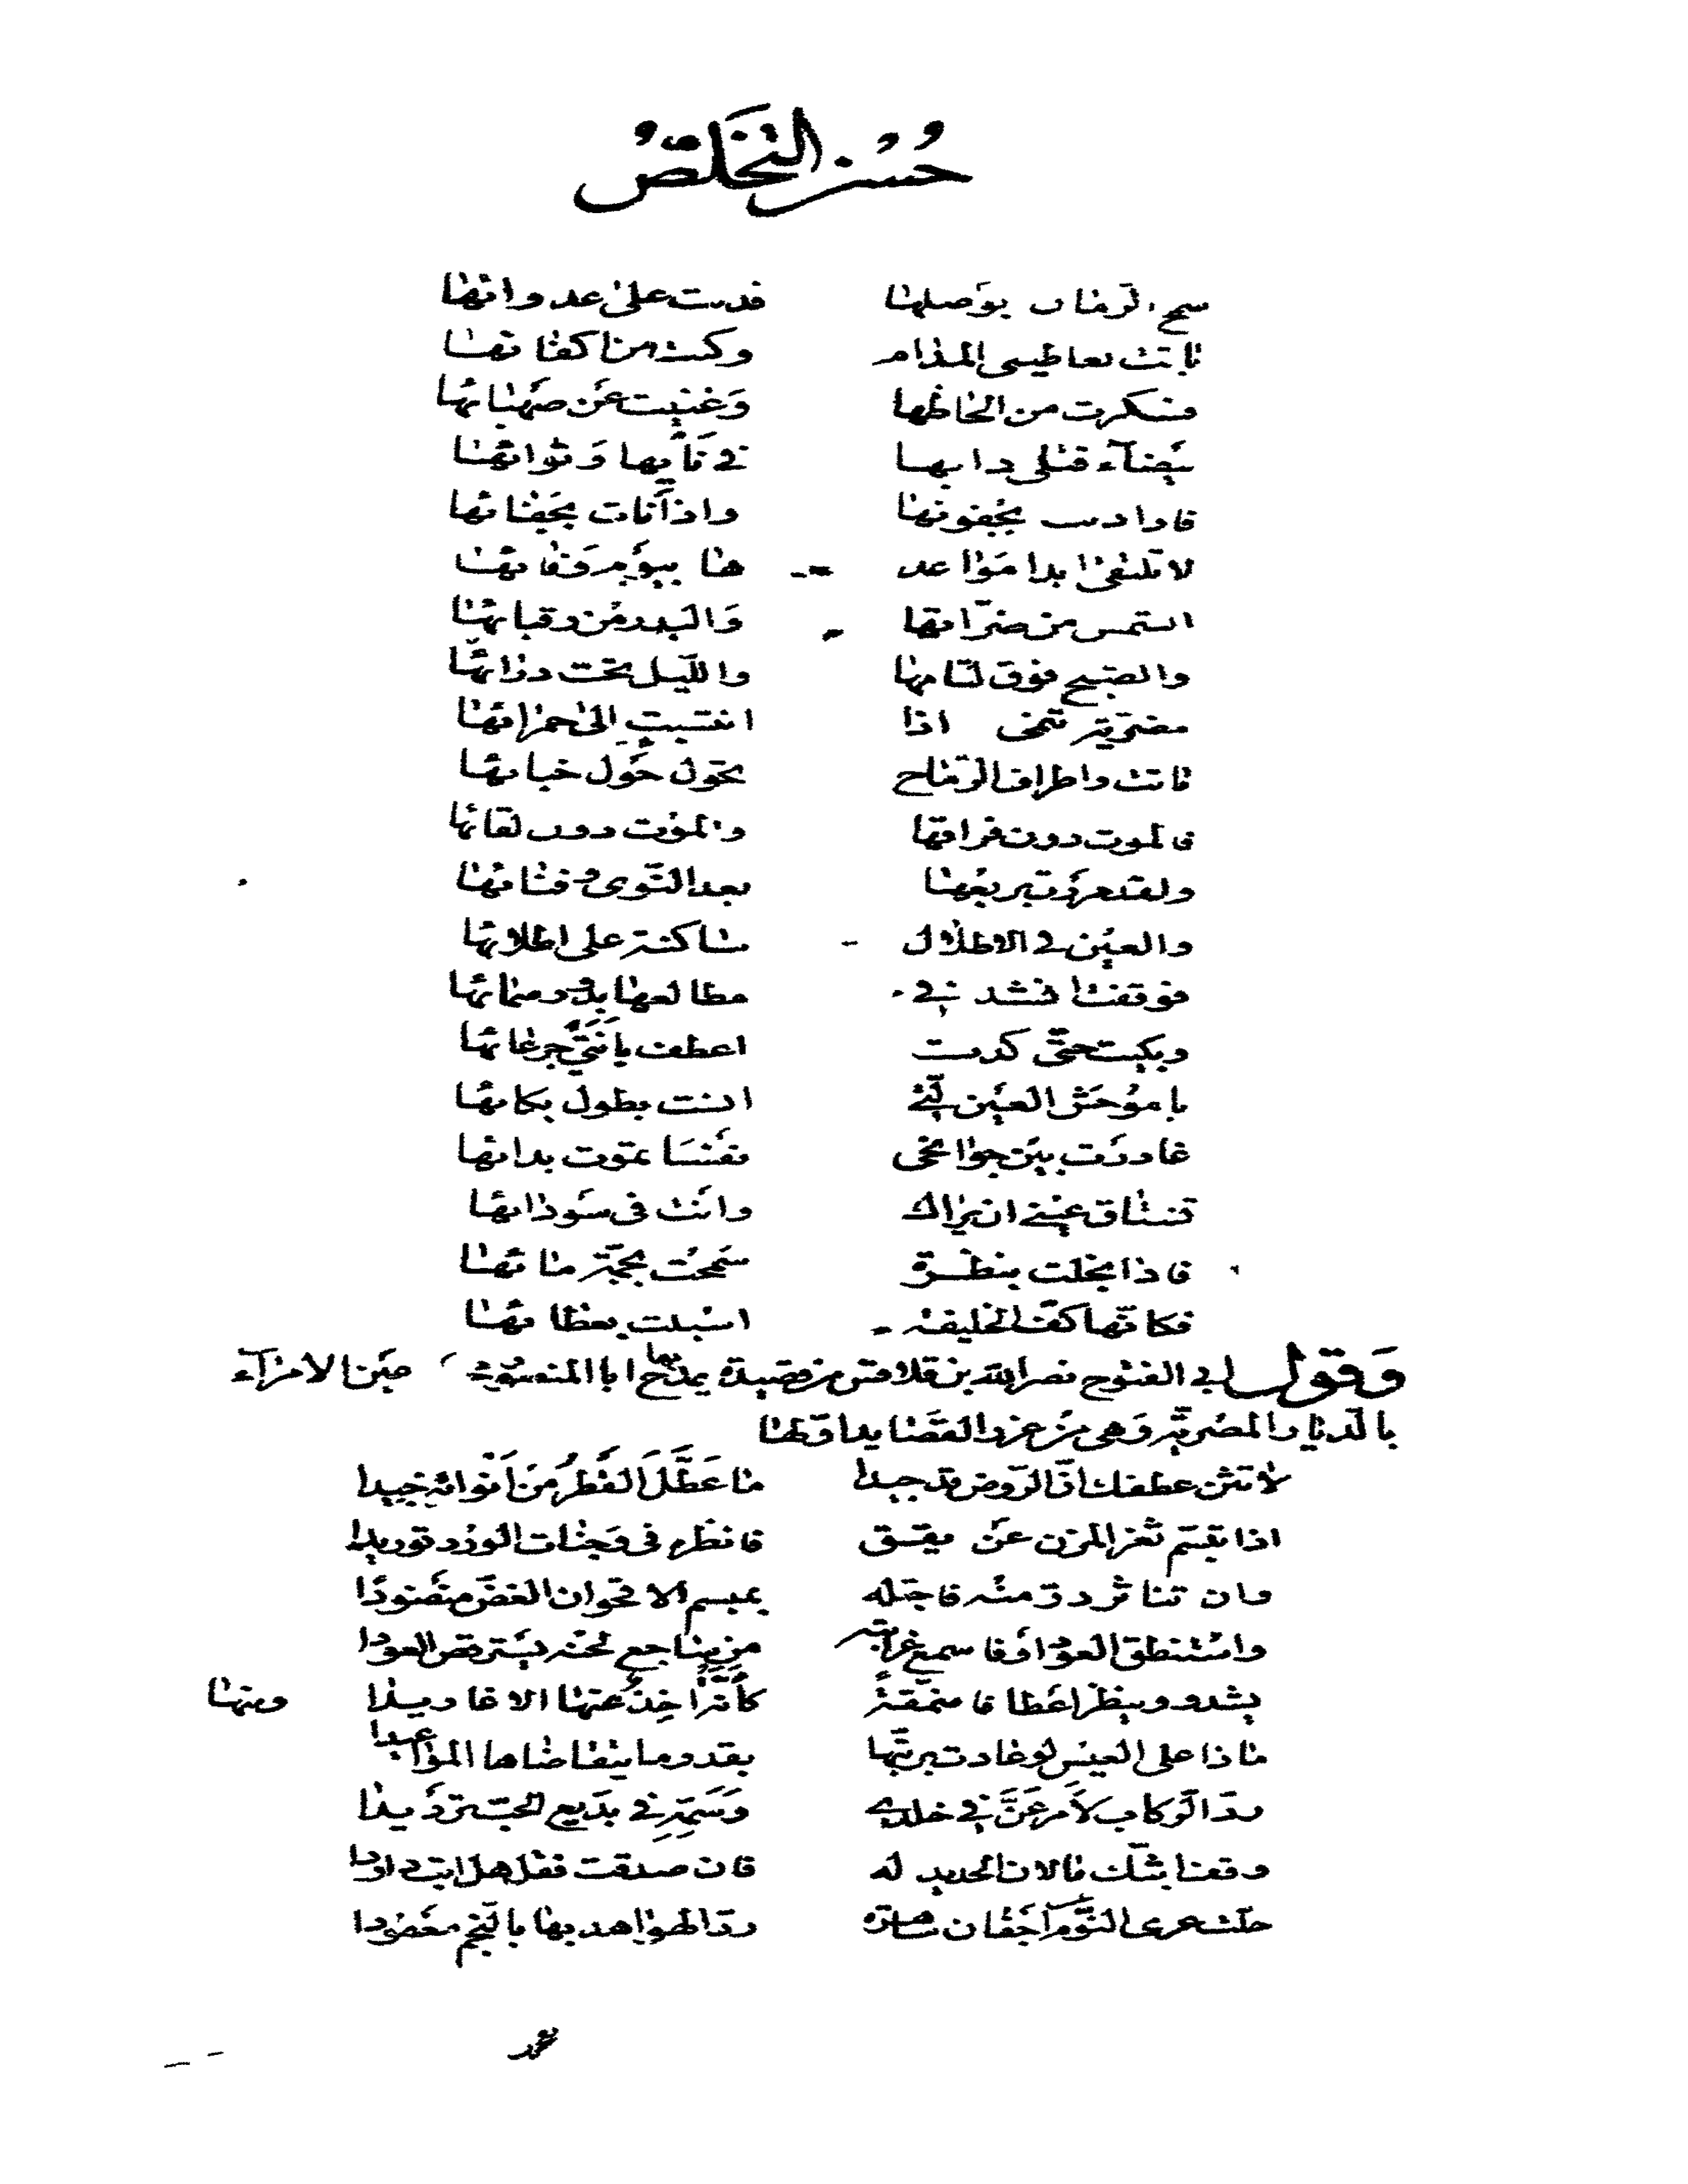 حسن التخلص
سمح الزمان بوصلها فدنت على عدوائها
باتت تعاطيني المدام وكنت من اكفائها
فسكرت من الحاظها وغنيت عن صهبائها
بيضآء قتلى دابها في نأيها وثوائها
فاذا دنت بجفونها واذا نات بجفائها
لا تلتقي ابدا مواعدها بيوم وفائها
الشمس من ضراتها والبدر من رقبائها
والصبح فوق لثامها والليل تحت ردائها
مضرية تنمى اذا انتسبت الى حمرائها
باتت واطراف الرماح تجول حول خبائها
فالموت دون فراقها والموت دون لقائها
ولقد مررت بربعها بعد النوى وفنائها
والعين في الاطلال ساكنة على اطلائها
فوقفت انشد في مطالعها بدور سمائها
وبكيت حتى كدت اعطف بانتي جرعائها
يا موحش العين التي انست بطول بكائها
غادرت بين جوانحي نفسا تموت بدائها
تشتاق عيني ان تراك وانت في سودائها
فاذا بخلت بنظرة سمحت بجمة مائها
فكانها كف الخليفة اسبلت بعطائها
وقول ابي الفتوح نصر الله بن قلاقس من قصيدة يمدح بها ابا المنصور عين الامرآء
بالديار المصرية وهي من غرر القصايد اولها
لا تثن عطفك ان الروض قد جيدا ما عطل القطر من انوائه جيدا
اذا تبسم ثغر المزن عن يقق فانظره في وجنات الورد توريدا
وان تناثر در منه فاجتله بمبسم الاقحوان الغض منضودا
واستنطق العود او فاسمع غرائبه من ساجع لحنه يسترقص العودا
يشدو وينظر اعطافا منمقة كأنه اخذ عنها الاغاريدا ومنها
ماذا على العيس لو عادت بربتها بقدر ما يتقاضاها المواعيدا
رد الركاب لأمر عن في خلدي وسمه في بديع الحب ترديدا
وقف ابثك ما لان الحديد له فان صدقت فقل هل انت داودا
حلت عرى النوم اجفان ساهرة رد الهوا هدبها بالنجم معقودا